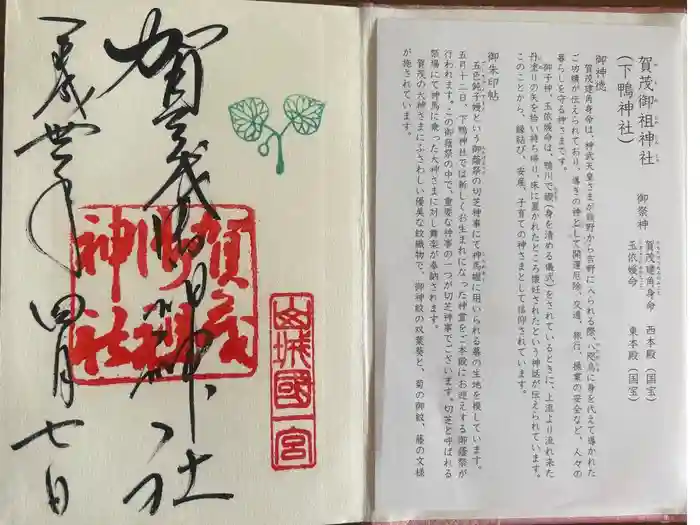 賀茂御祖神社
(下鴨神社)
御祭神
賀茂建角身命 西本殿(国宝)
玉依媛命 東本殿(国宝)
御神徳
賀茂建角身命は、神武天皇さまが熊野から吉野にへられる際、八咫烏に身を代えて導かれた
ご功績が伝えられており、導きの神として開運厄除、交通、旅行、操業の安全など、人々の
暮らしを守る神さまです。
御子神、玉依媛命は、鴨川で禊(身を清める儀式)をされているときに、上流より流れ来た
丹塗りの矢を拾い持ち帰り、床に置かれたところ懐妊されたという神話が伝えられています。
このことから、縁結び、安産、子育ての神さまとして信仰されています。
御朱印帖
五色鈍子幔という御蔭祭の切芝神事にて神馬幄に用いられる幕の生地を模しています。
五月十二日、下鴨神社では新しくお生まれになった神霊をご本殿にお迎えする御蔭祭が
行われます。この御蔭祭の中で、重要な神事の一つが切芝神事でございます。切芝と呼ばれる
祭場にて神馬に乗った大神さまに対し舞楽が奉納されます。
賀茂の大神さまにふさわしい優美な紋織物で、御神紋の双葉葵と、菊の御紋、藤の文様
が施されています。
山城國一宮
賀茂御祖神社
神社
四月七日